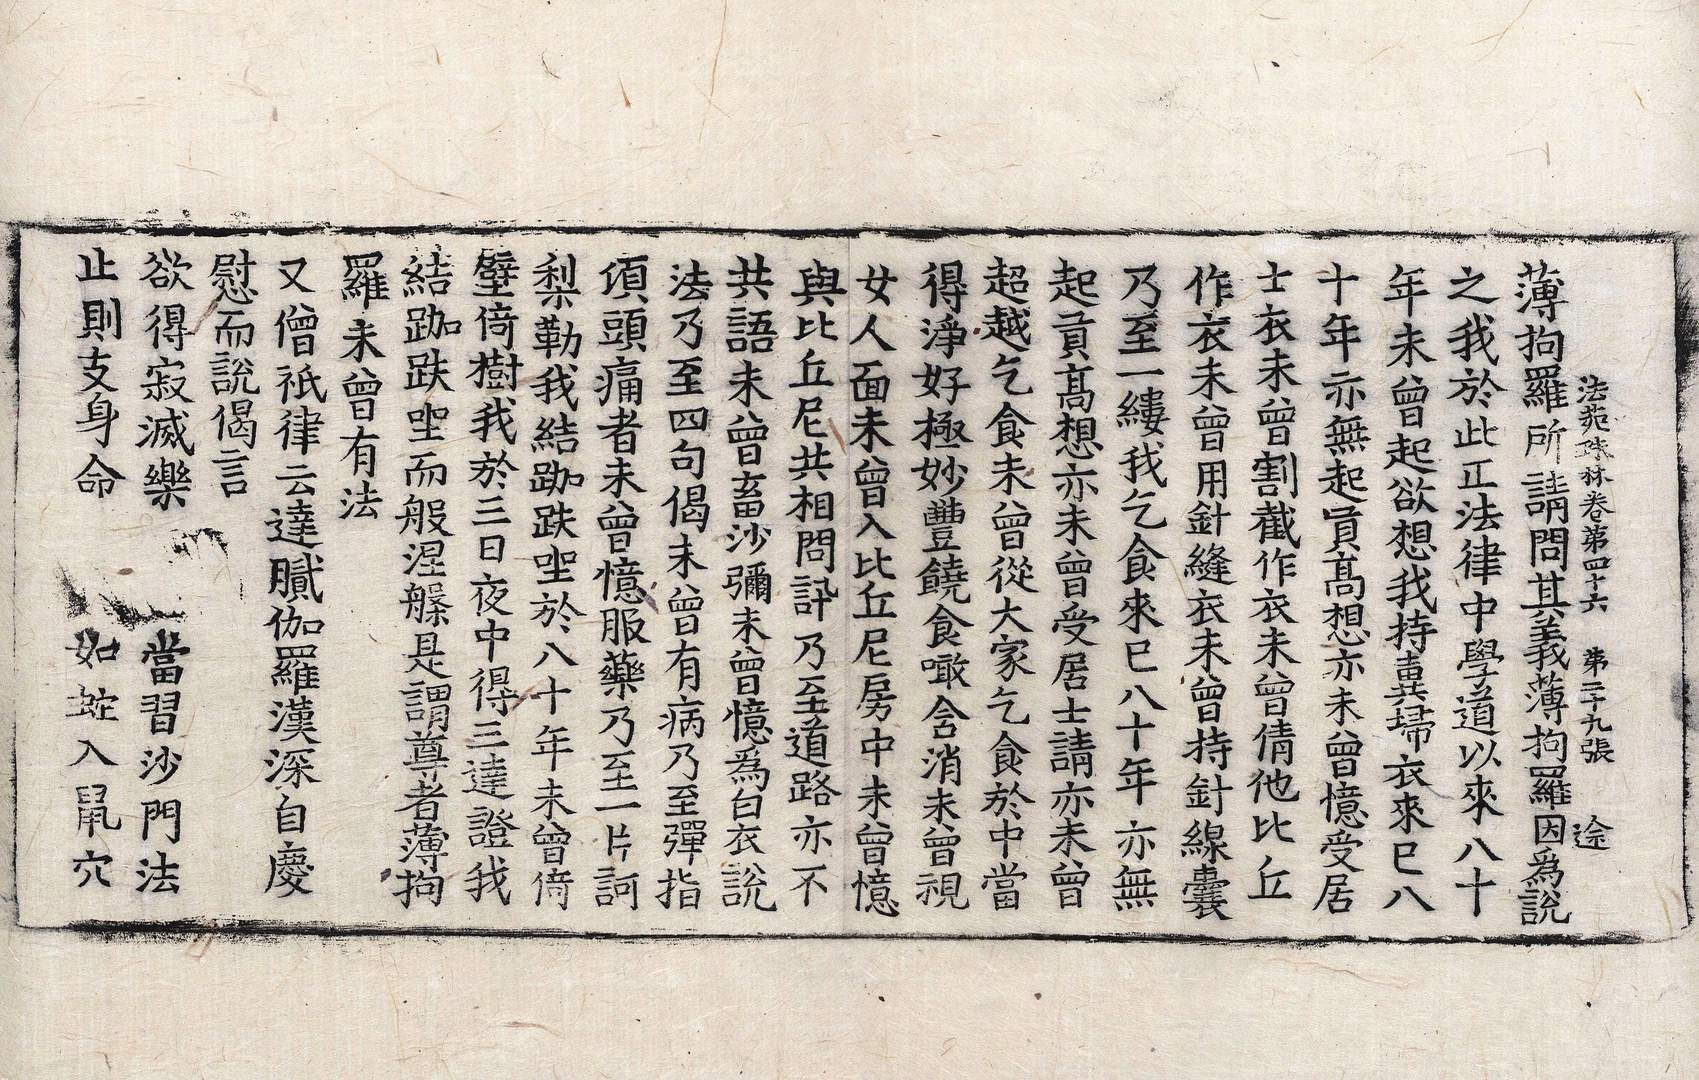 法苑珠林卷第四十六　第三十九張　途
薄拘羅所請問其義薄拘羅因爲說
之我於此正法律中學道以來八十
年未曾起欲想我持糞掃衣來已八
十年亦無起貢高想亦未曾憶受居
士衣未曾割截作衣未曾倩他比丘
作衣未曾用針縫衣未曾持針線囊
乃至一縷我乞食來已八十年亦無
起貢高想亦未曾受居士請亦未曾
超越乞食未曾從大家乞食於中當
得淨好極妙豐饒食噉含消未曾視
女人面未曾入比丘尼房中未曾憶
與比丘尼共相問訊乃至道路亦不
共語未曾畜沙彌未曾憶爲白衣說
法乃至四句偈未曾有病乃至彈指
頃頭痛者未曾憶服藥乃至一片訶
梨勒我結跏趺坐於八十年未曾倚
壁倚樹我於三日夜中得三達證我
結跏趺坐而般涅槃是謂尊者薄拘
羅未曾有法
又僧祇律云達膩伽羅漢深自慶
慰而說偈言
欲得寂滅樂　當習沙門法
止則支身命　如蛇入鼠穴